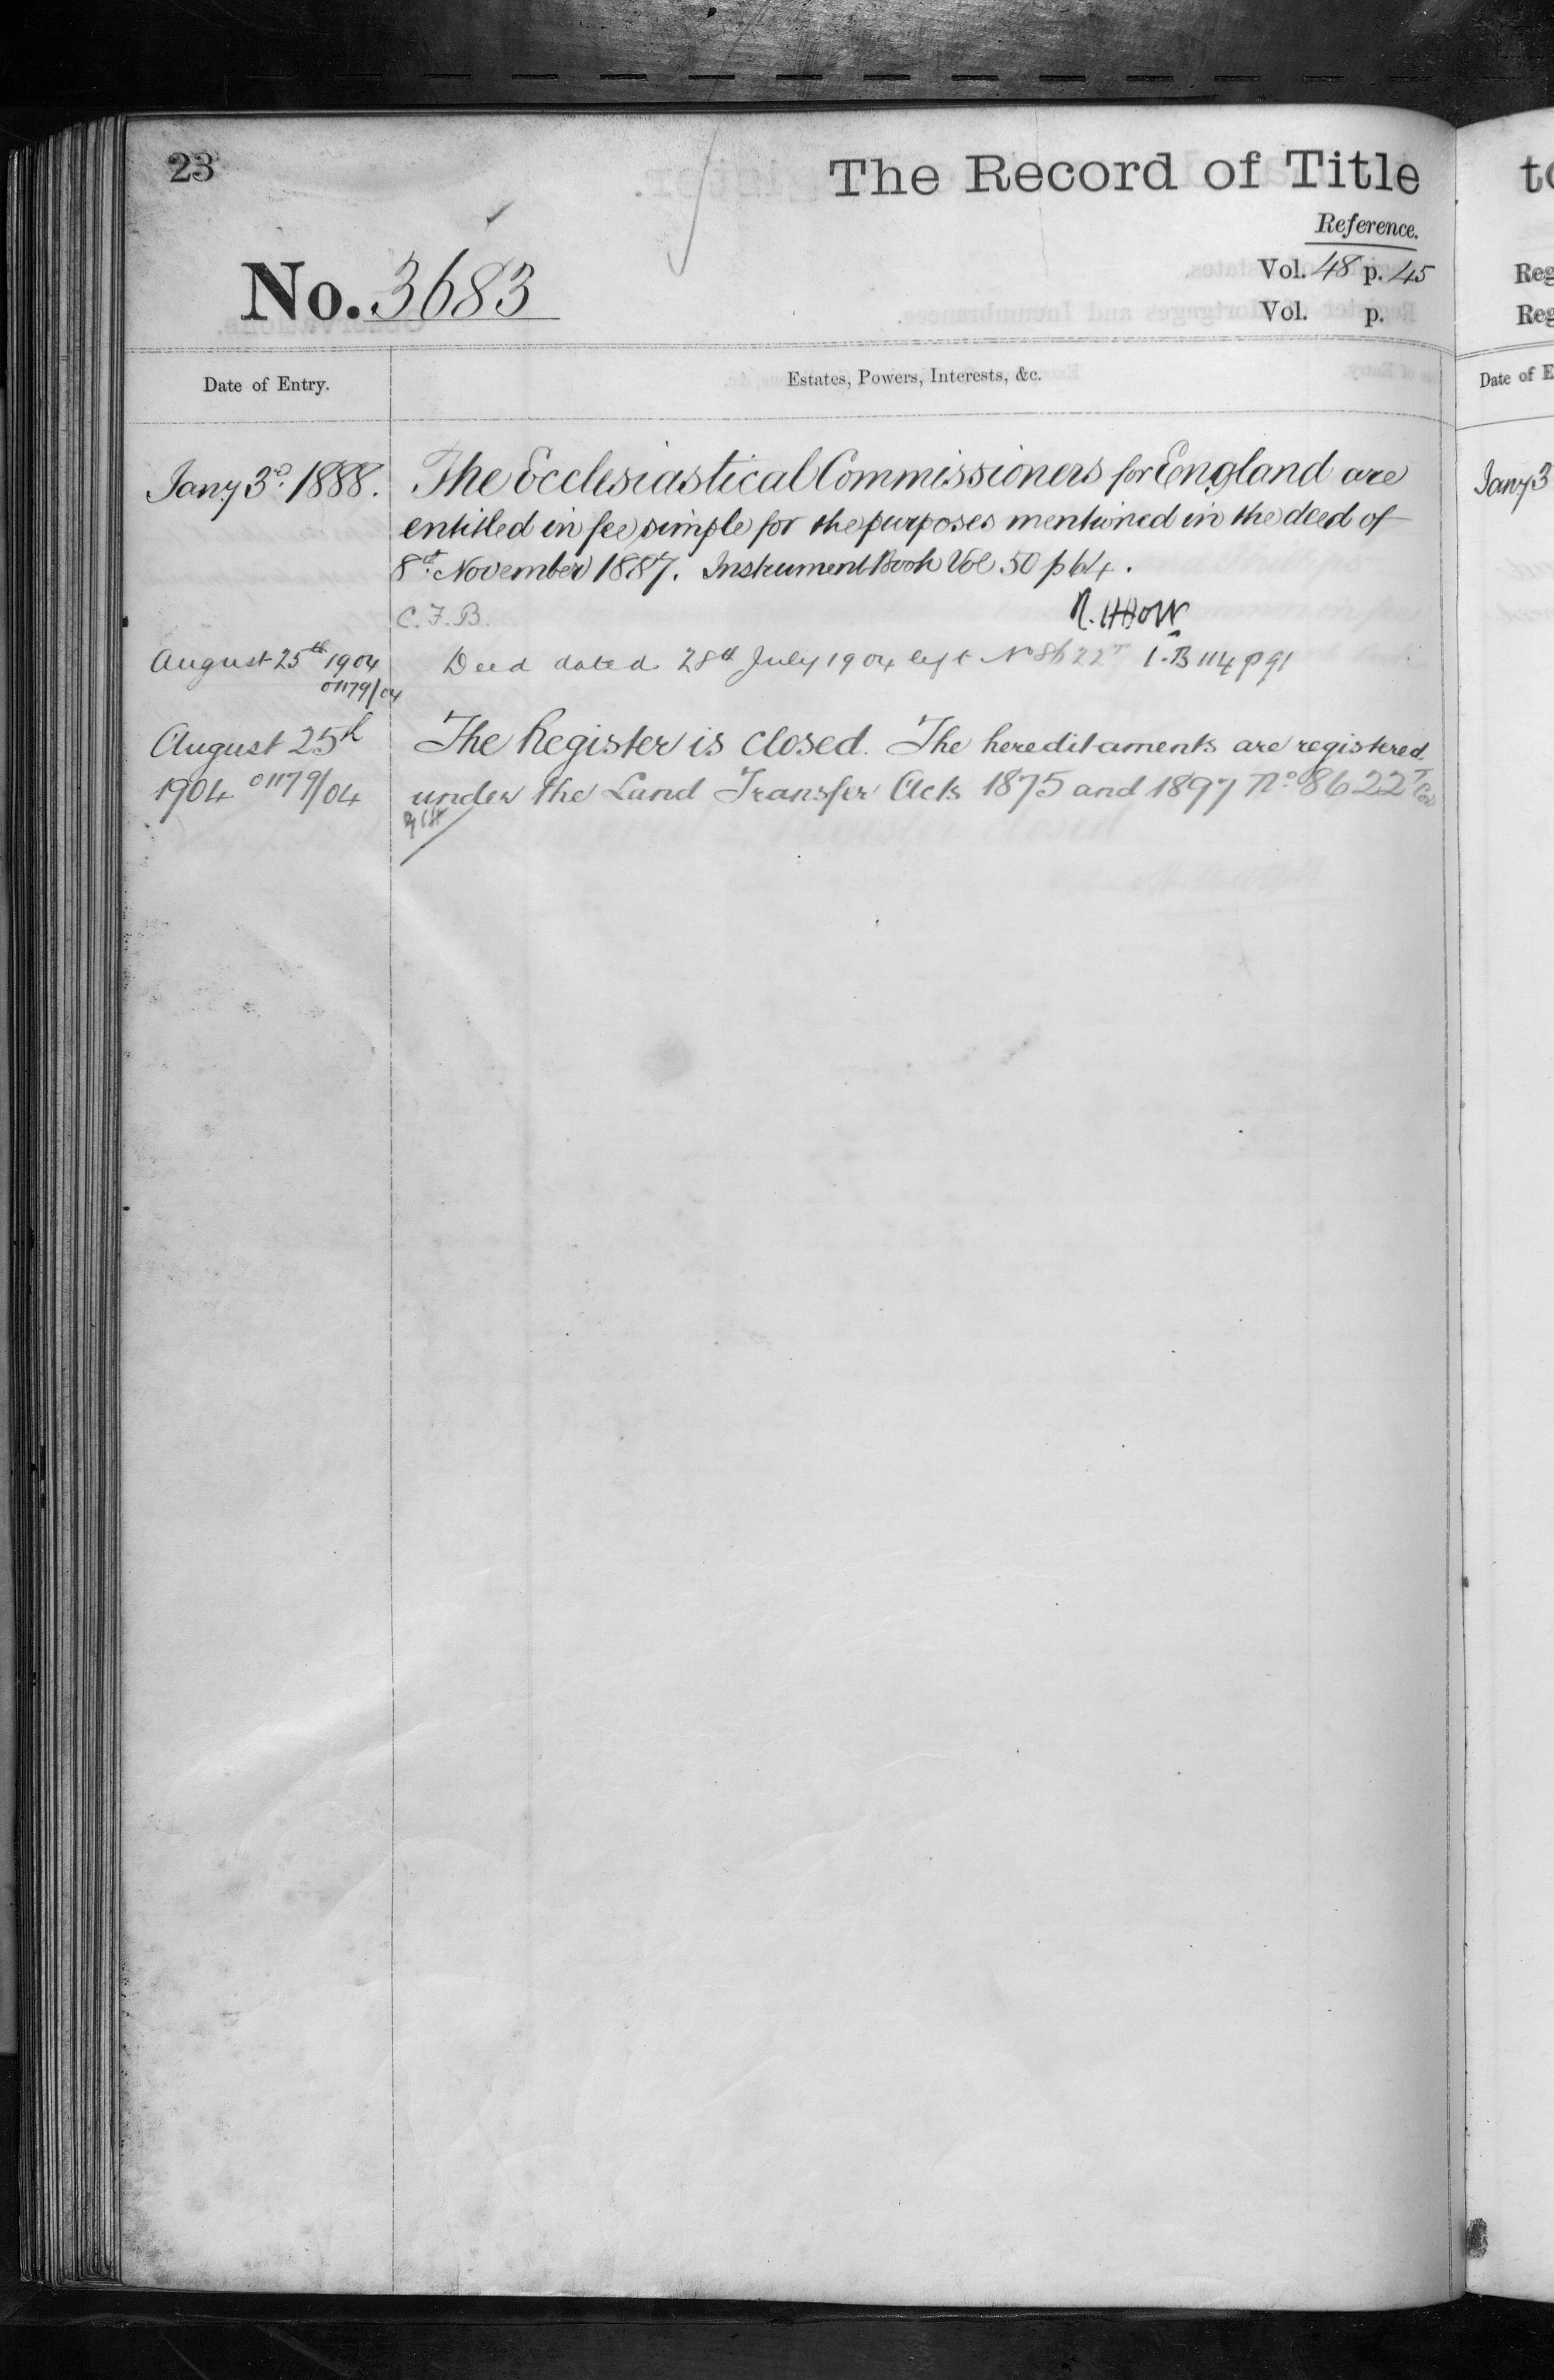 23
The Record of Title
Reference.
No. 3683
Vol. 48 p. 45
Vol. p.
Date of Entry.
Estates, Powers, Interests, &c.
Jany 3d. 1888.
The Ecclesiastical Commissioners for England are
entitled in fee simple for the purposes mentioned in the deed of
8th November 1887. Instrument Book Vol 50 p 64.
C. F. B.
August 25th 1904
01179/04
Deed dated 28th July 1904 No 8622T I.B 114 p 91
August 25th
1904 01179/04
The Register is closed. The hereditaments are registered
under the Land Transfer Acts 1875 and 1897 No. 8622T
to
Reg
Reg
Date of E
Jany 3